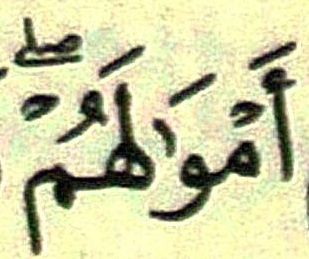 أَمْوَٰلَهُمْۖ